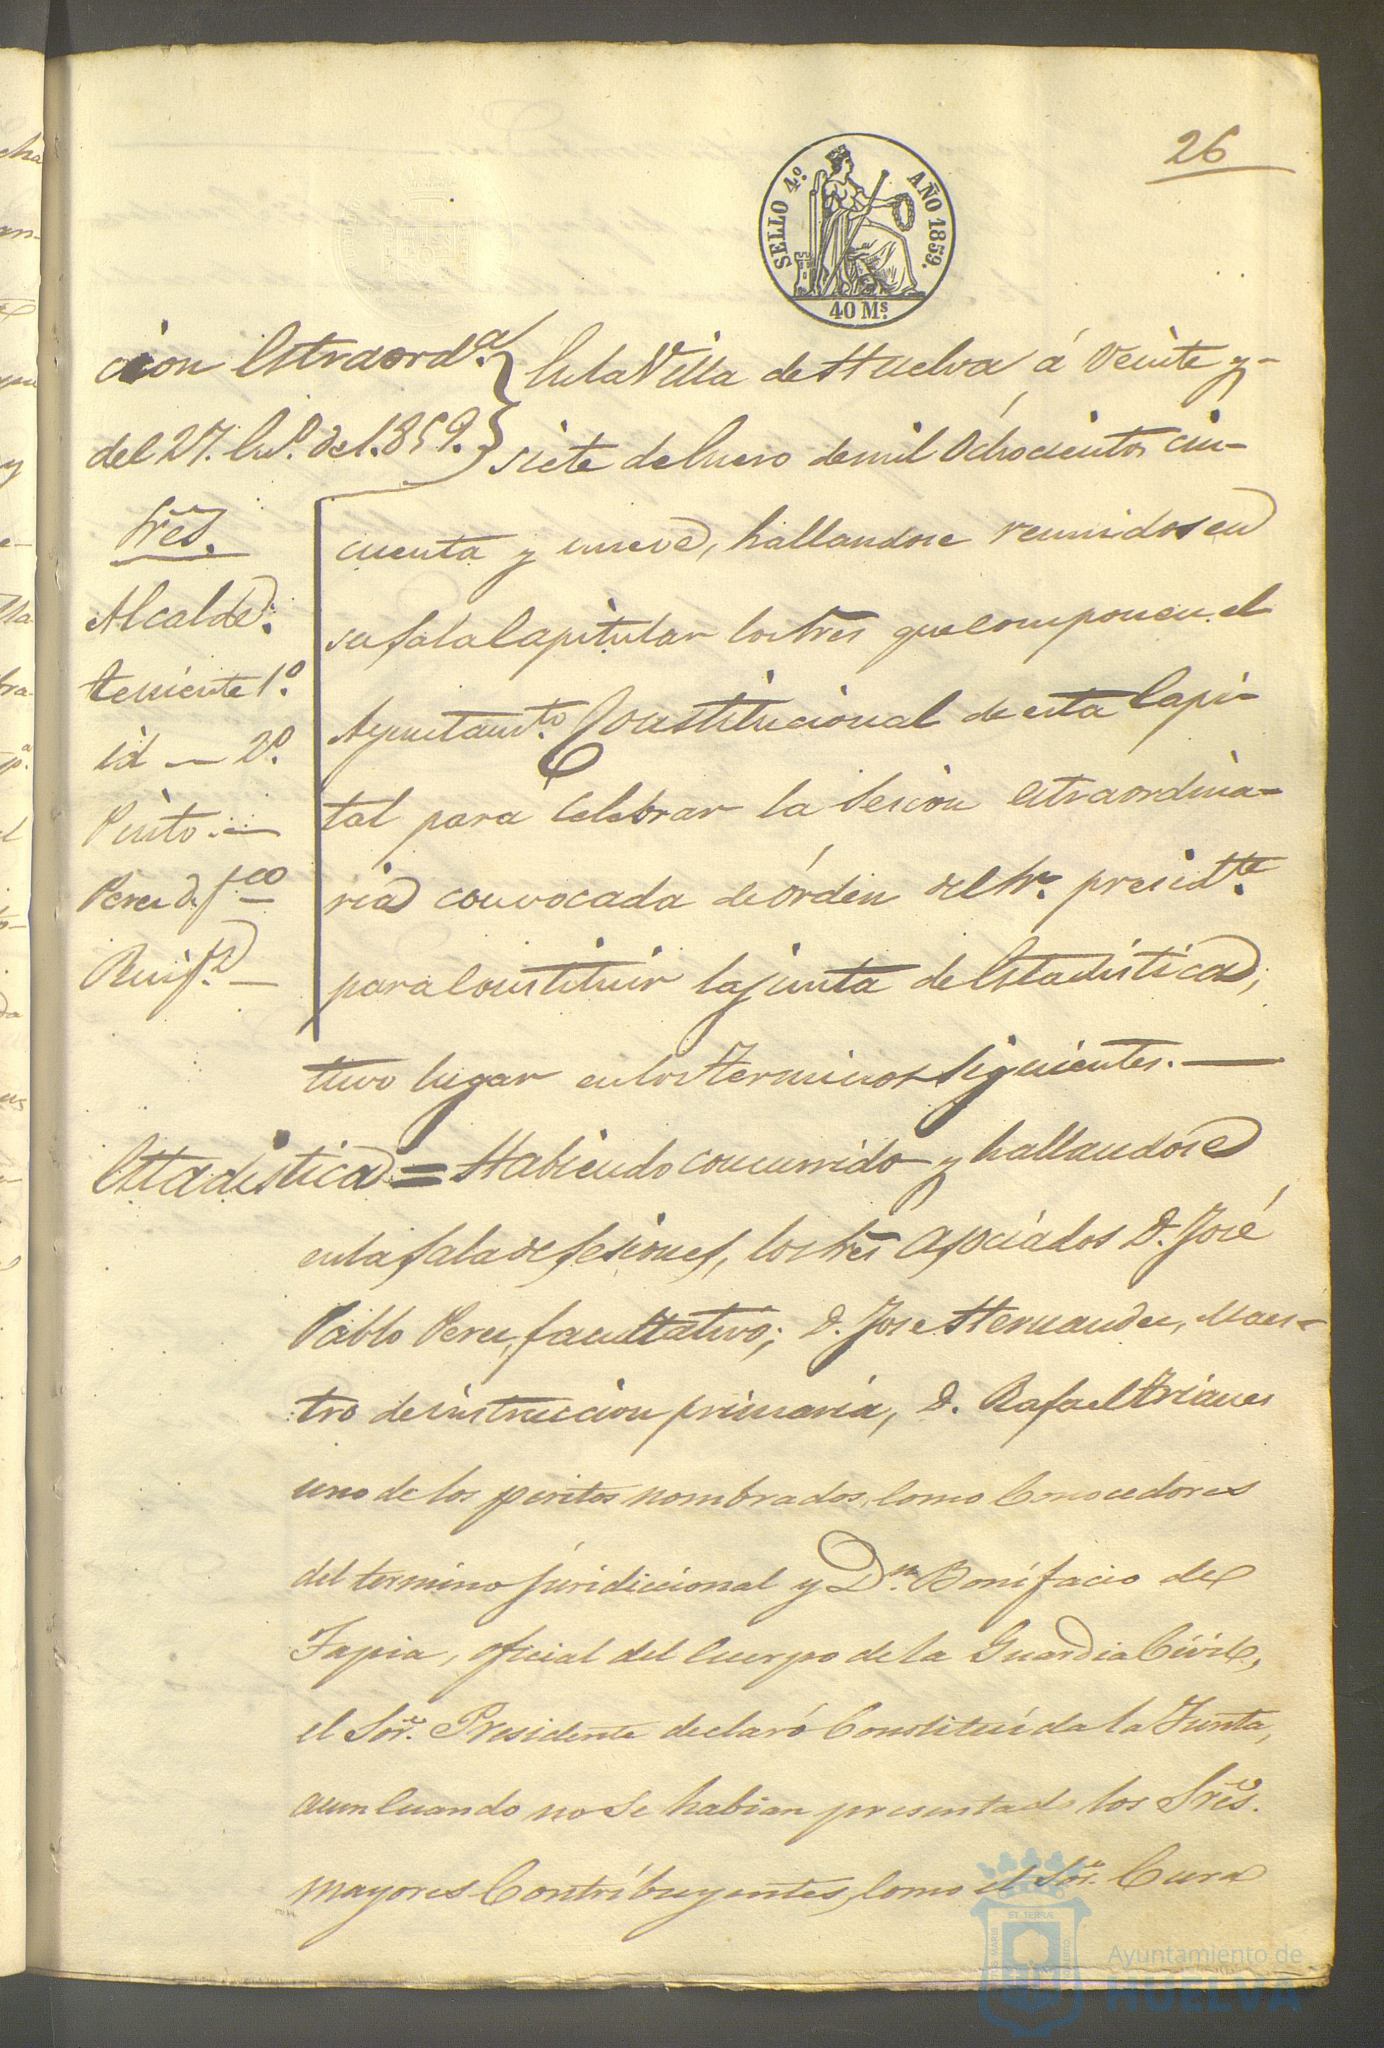 26
SELLO 4º AÑO 1859.
40 Ms.
cion Extraord.ª
del 27. En.º de 1.859.
Sres.
Alcalde.
teniente 1º.
id — 2º.
Pinto. —
Perez d. f.co —
Ruiz f.º —
En la Villa de Huelva á veinte y-
siete de Enero de mil Ochocientos cin-
cuenta y nueve, hallandose reunidos en
su sala Capitular los Sres que componen el
Ayuntam.to Constitucional de esta Capi-
tal para Celebrar la Sesion extraordina-
ria convocada de órden del Sr. presid.te
para Constituir la junta de Estadistica,
tuvo lugar en los terminos siguientes. —
Estadistica = Habiendo concurrido y hallandose
en la sala de sesiones, los Sres Asociados D. José
Pablo Perez, facultativo; D. Jose Hernandez, Maes-
tro de instruccion primaria, D. Rafael Trianes
uno de los peritos nombrados, como Conocedores
del termino jurídiccional y Dn. Bonifacio de
Tapia, oficial del Cuerpo de la Guardia Civil,
el Sor. Presidente declaró Constituída la Junta,
aun Cuando no se habian presentado los Sres.
mayores Contribuyentes, como el Sor. Cura
Ayuntamiento de
HUELVA